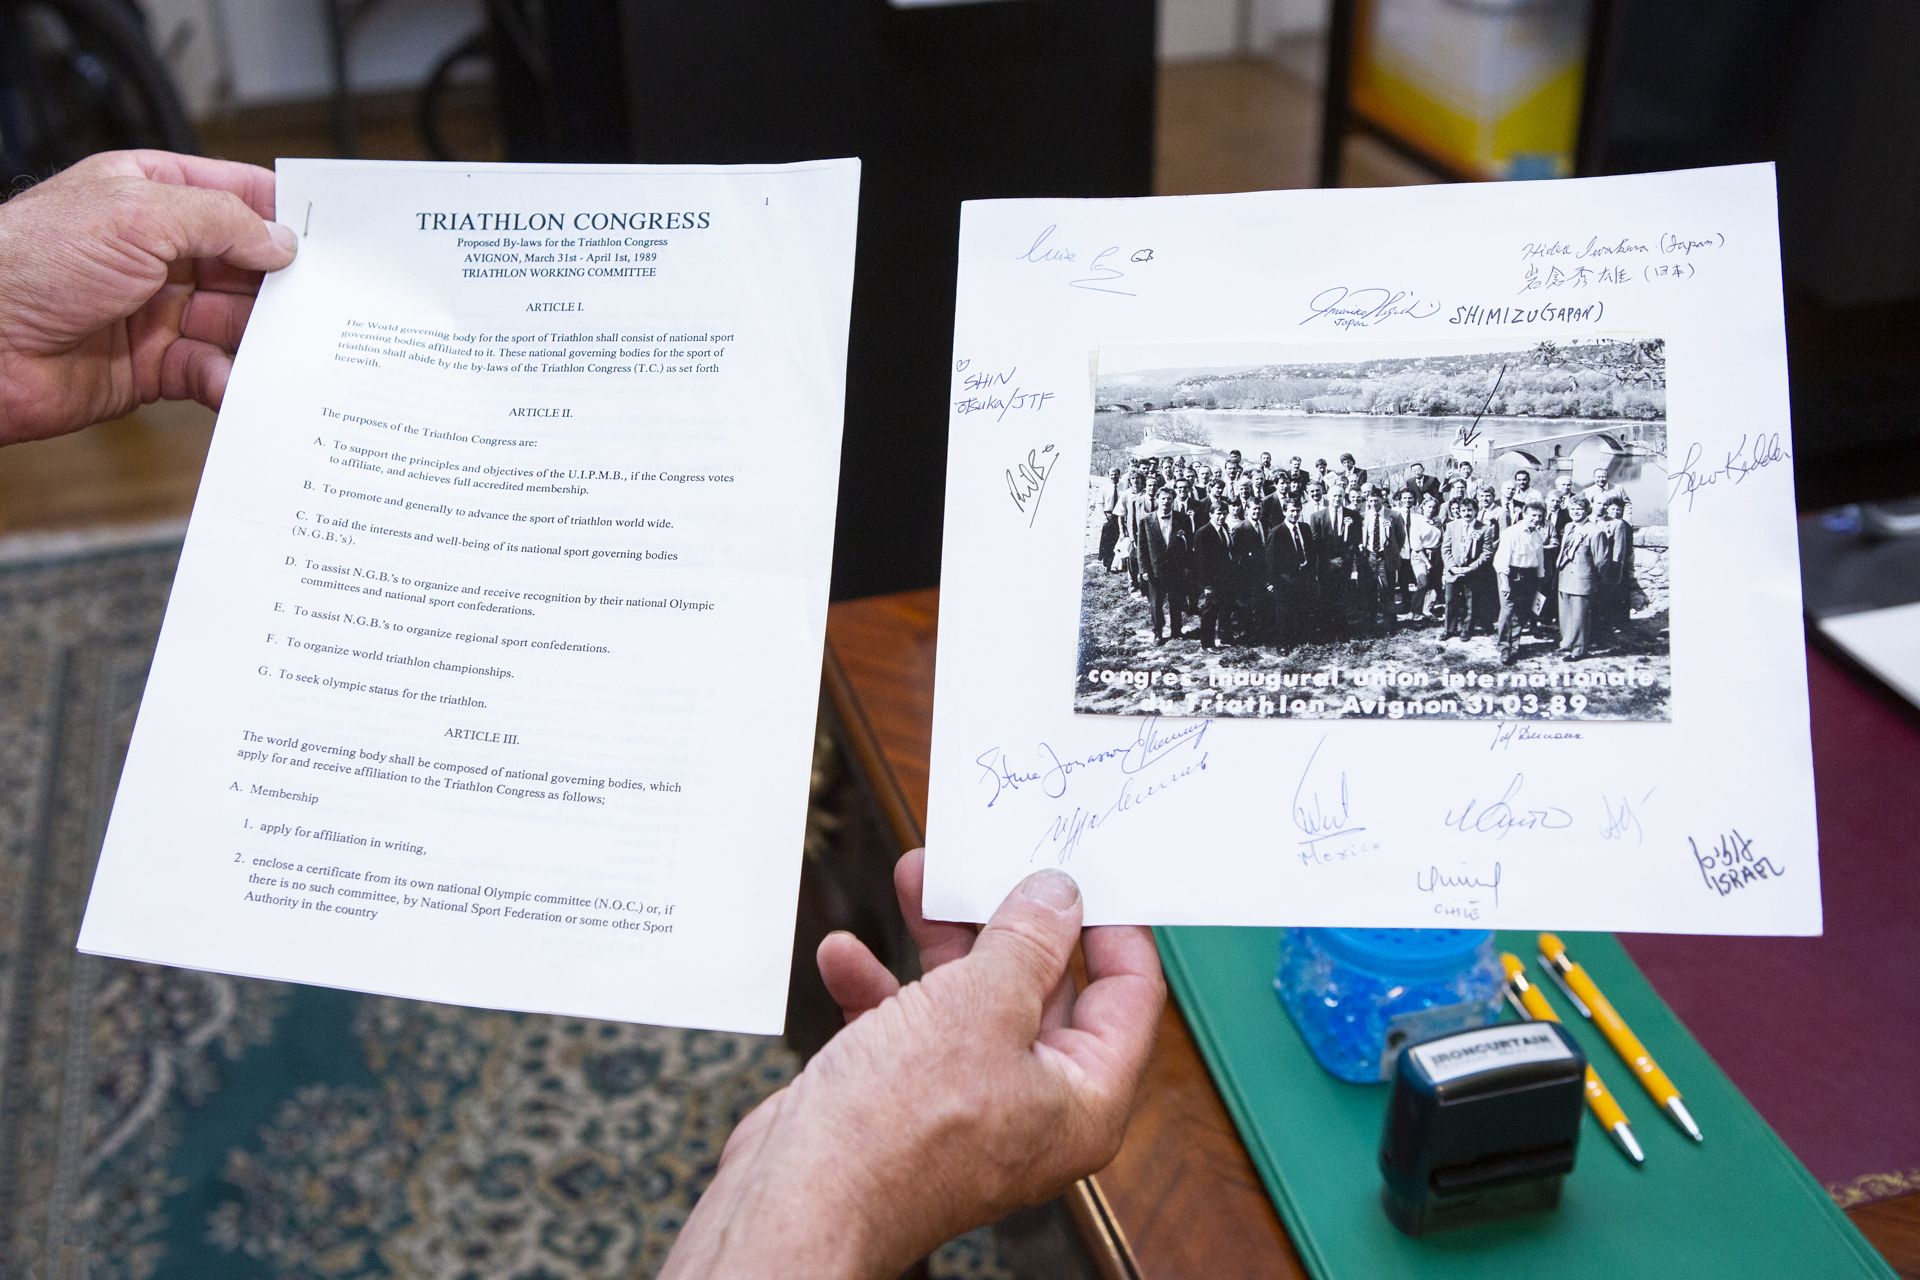 1
TRIATHLON CONGRESS
Proposed By-laws for the Triathlon Congress
AVIGNON, March 31st - April 1st, 1989
TRIATHLON WORKING COMMITTEE
ARTICLE I.
The World governing body for the sport of Triathlon shall consist of national sport
governing bodies affiliated to it. These national governing bodies for the sport of
triathlon shall abide by the by-laws of the Triathlon Congress (T.C.) as set forth
herewith.
ARTICLE II.
The purposes of the Triathlon Congress are:
A. To support the principles and objectives of the U.I.P.M.B., if the Congress votes
to affiliate, and achieves full accredited membership.
B. To promote and generally to advance the sport of triathlon world wide.
C. To aid the interests and well-being of its national sport governing bodies
(N.G.B.'s).
D. To assist N.G.B.'s to organize and receive recognition by their national Olympic
committees and national sport confederations.
E. To assist N.G.B.'s to organize regional sport confederations.
F. To organize world triathlon championships.
G. To seek olympic status for the triathlon.
ARTICLE III.
The world governing body shall be composed of national governing bodies, which
apply for and receive affiliation to the Triathlon Congress as follows;
A. Membership
1. apply for affiliation in writing,
2. enclose a certificate from its own national Olympic committee (N.O.C.) or, if
there is no such committee, by National Sport Federation or some other Sport
Authority in the country
GB
Hideo Iwakura (Japan)
岩倉秀雄 (日本)
Japan
SHIMIZU (JAPAN)
SHIN
OTSUKA/JTF
Lew Kidder
congres inaugural union internationale
du Triathlon Avignon 31 03-89
Sture Jonasson
Mexico
CHILE
ISRAEL
IRONCURTAIN